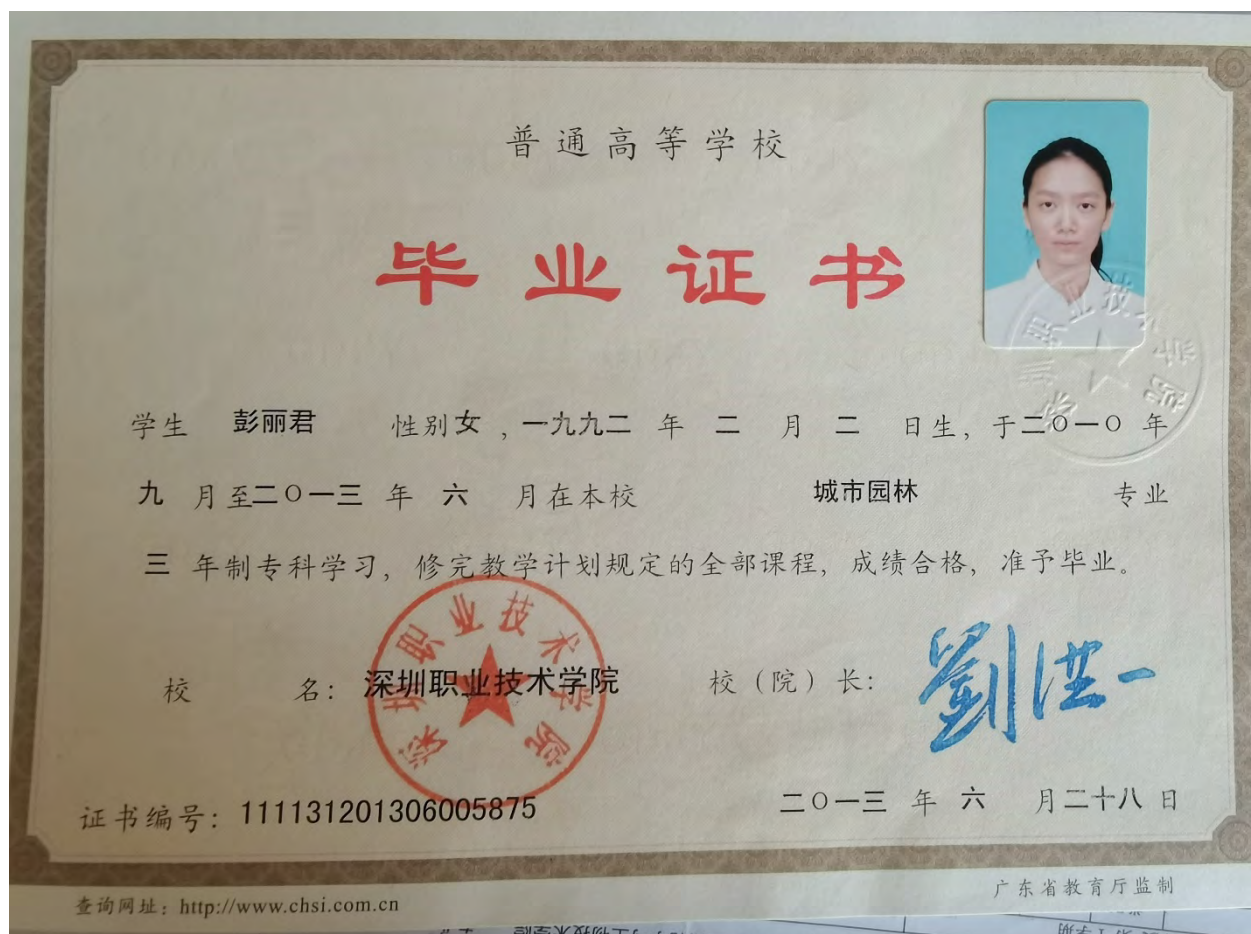 普通高等学校
毕业证书
学生 彭丽君 性别女，一九九二 年 二 月 二 日生，于二〇一〇 年
九 月至二〇一三 年 六 月在本校 城市园林 专业
三 年制专科学习，修完教学计划规定的全部课程，成绩合格，准予毕业。
校 名：深圳职业技术学院 校（院）长：劉洪一
深圳职业技术学院
深圳职业技术学院
证书编号：111131201306005875 二〇一三 年 六 月二十八 日
查询网址：http://www.chsi.com.cn 广东省教育厅监制